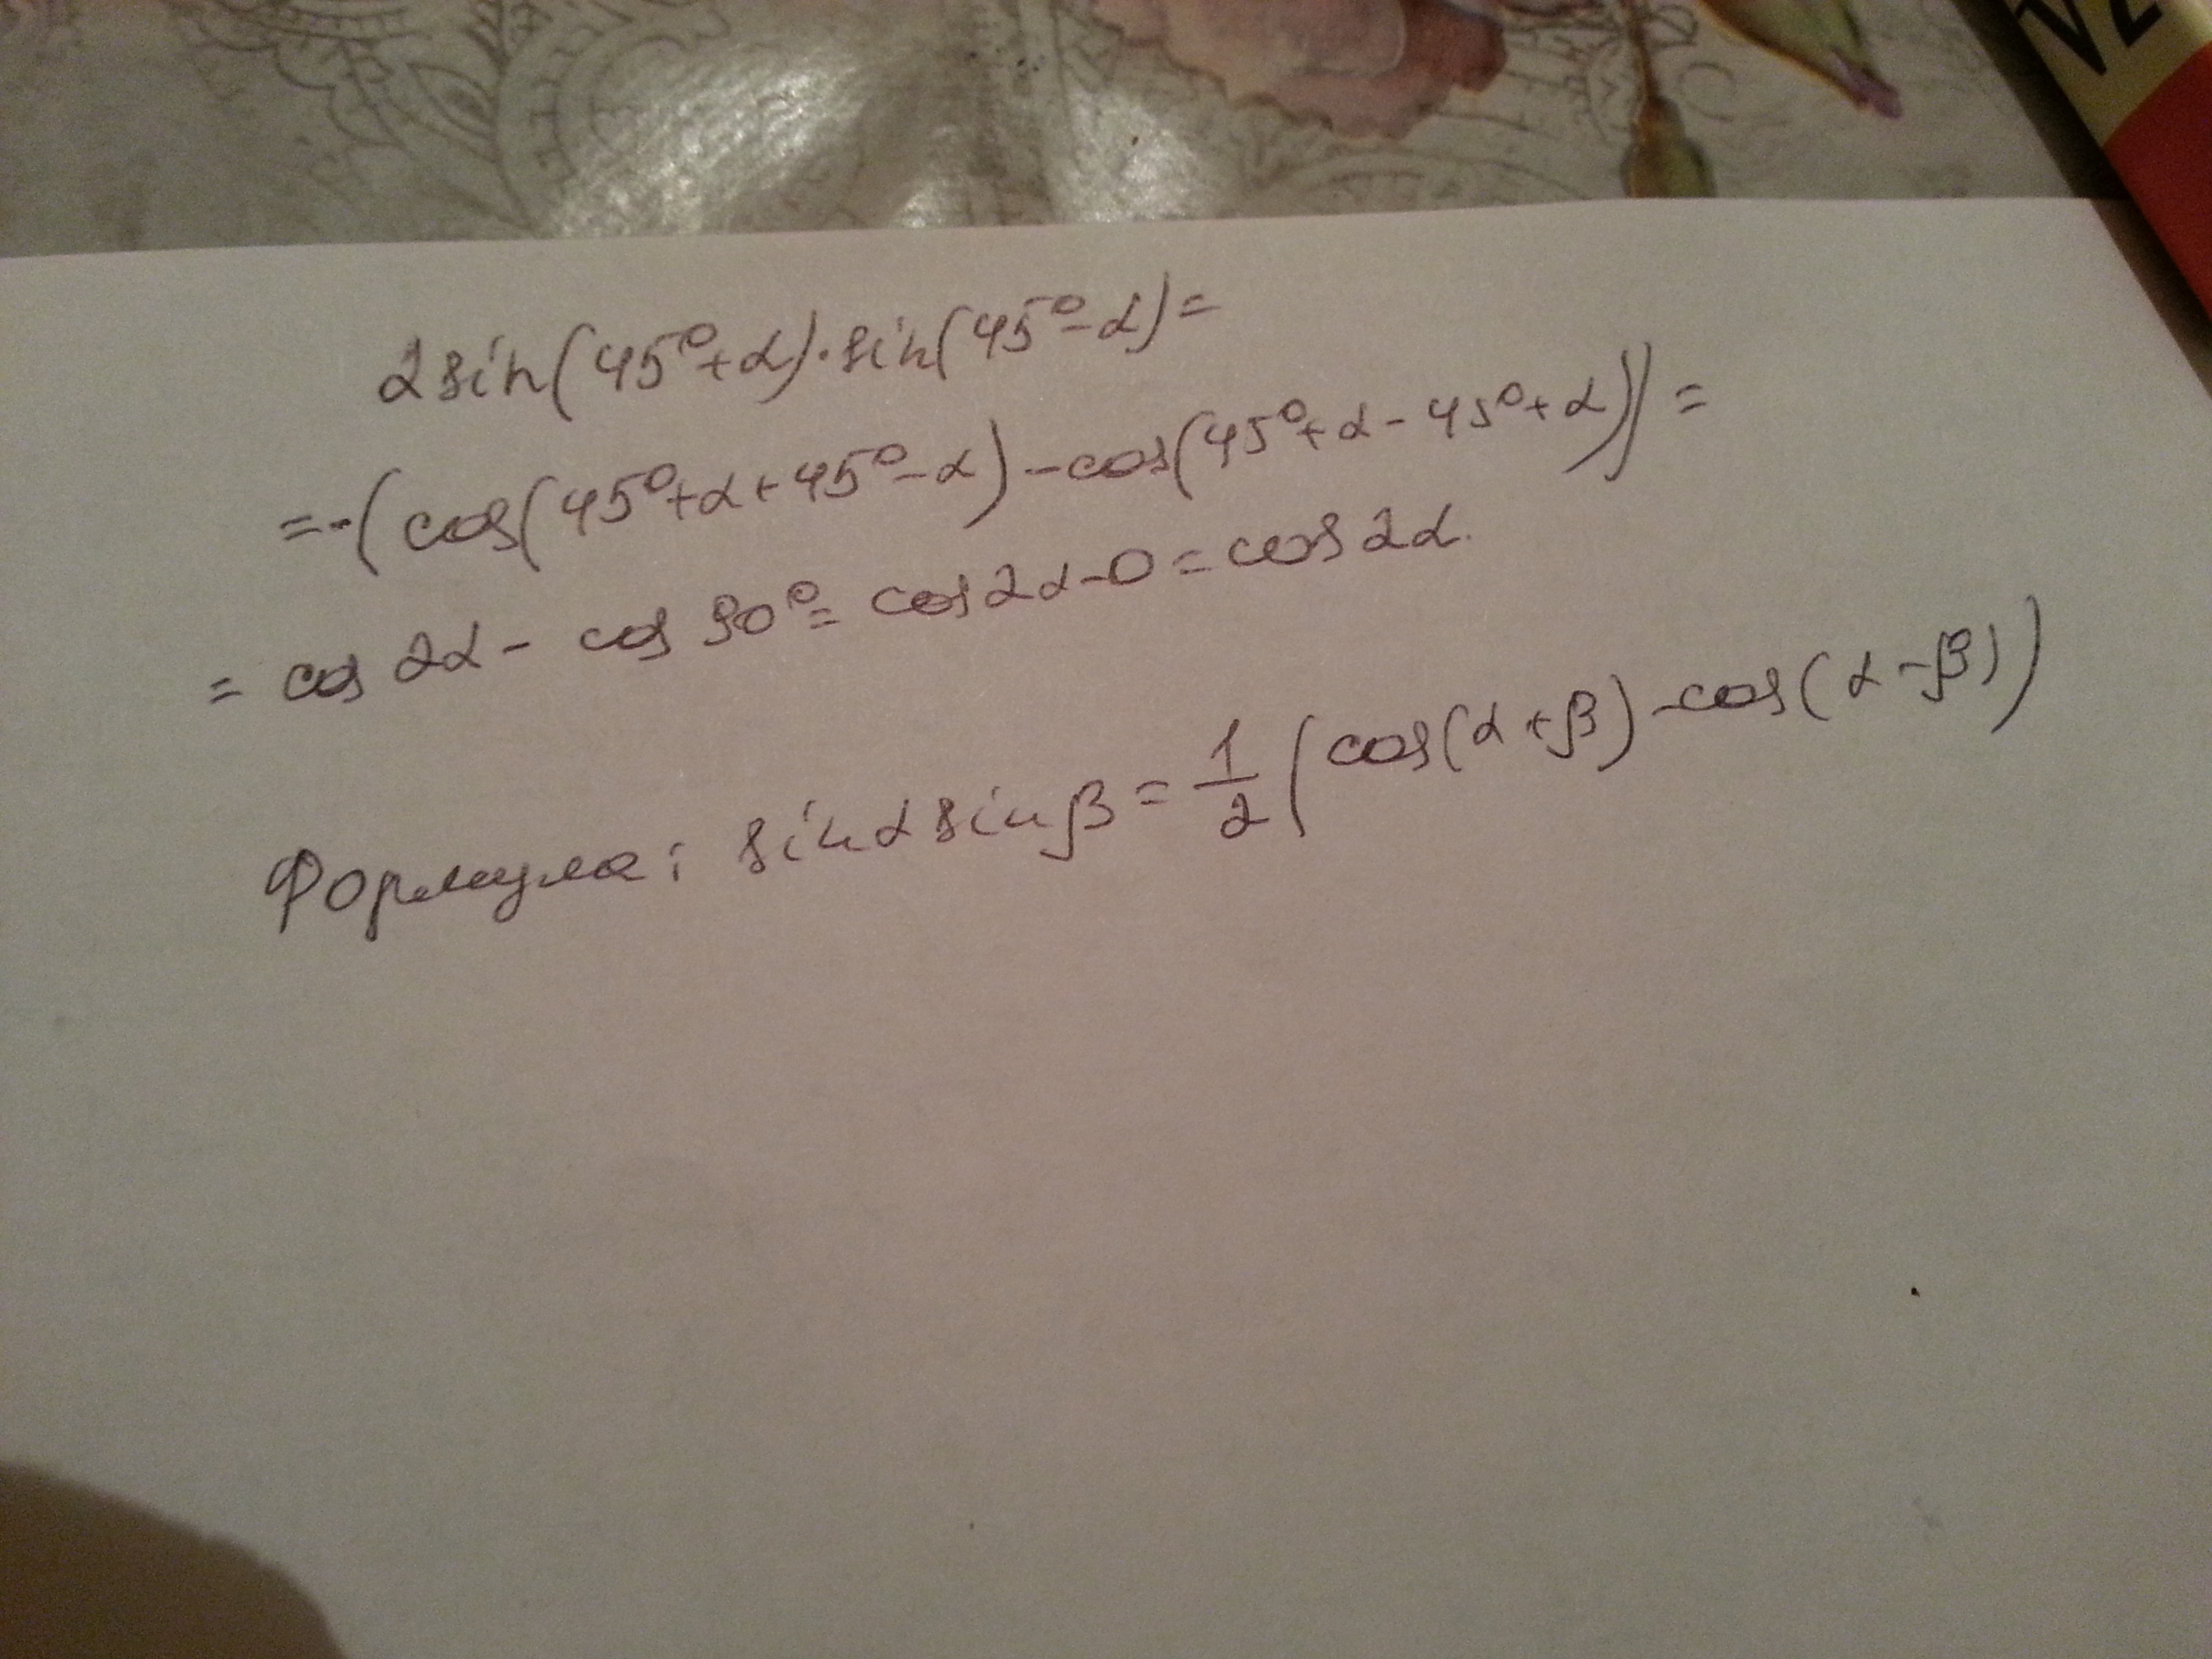 2sin(45°+α)·sin(45°-α)=
=-(cos(45°+α+45°-α)-cos(45°+α-45°+α))=
=cos 2α - cos 90°= cos 2α-0=cos 2α.
Формула: sinα sinβ = 1/2 (cos(α+β)-cos(α-β))